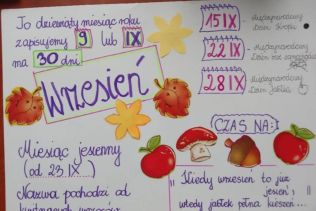 To dziewiąty miesiąc roku
zapisujemy 9 lub IX
ma 30 dni
Wrzesień
Miesiąc jesienny
(od 23.IX...)
Nazwa pochodzi od
15 IX - międzynarodowy
Dzień
22 IX - międzynarodowy
Dzień bez samochodu
28 IX - międzynarodowy
Dzień Jabłka
CZAS NA:
"Kiedy wrzesień to już
jesień,
wtedy jabłek pełna kieszeń...